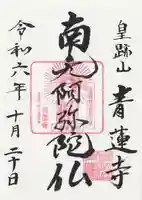 皇跡山 青蓮寺
南無阿弥陀仏
令和六年 十月二十日